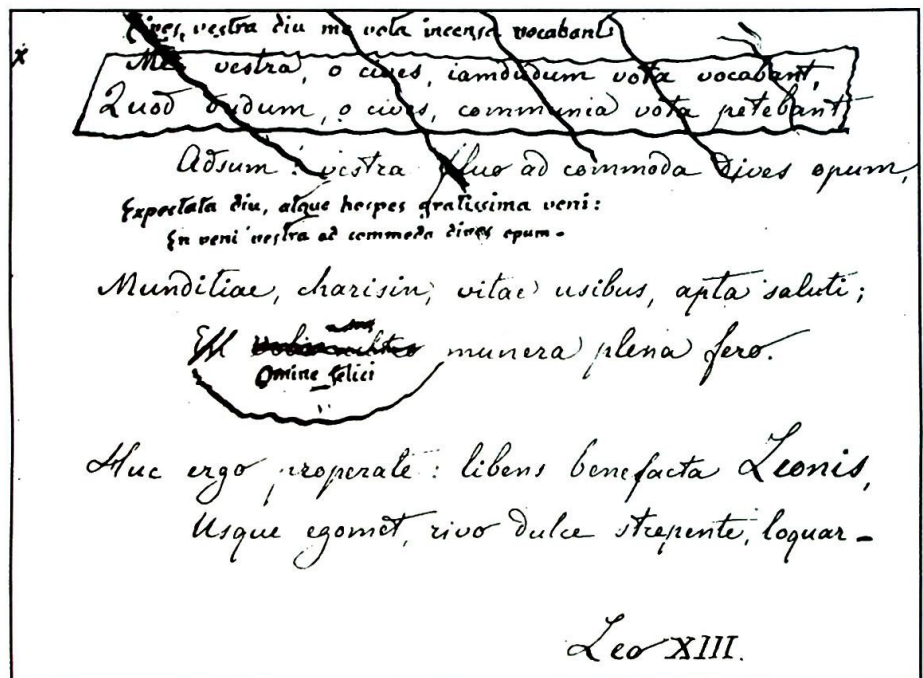 Cives, vestra diu me vota incensa vocabant
x
Me vestra, o cives, iamdudum vota vocabant,
Quod dudum, o cives, communia vota petebant
Adsum: vestra fluo ad commoda dives opum,
Expectata diu, atque hospes gratissima veni:
En veni vestra ad commoda dives opum -
Munditiae, charisin, vitae usibus, apta saluti;
Omine felici
munera plena fero.
Huc ergo properate: libens benefacta Leonis,
Usque egomet, rivo dulce strepente, loquar -
Leo XIII.